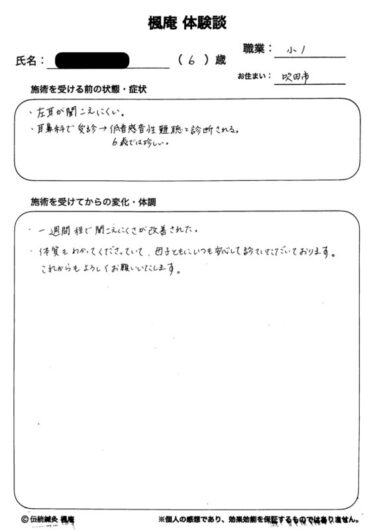 楓庵 体験談
氏名：
（ 6 ）歳
職業： 小1
お住まい： 吹田市
施術を受ける前の状態・症状
・左耳が聞こえにくい。
・耳鼻科で受診→低音感音性難聴と診断される。
6歳では珍しい。
施術を受けてからの変化・体調
・一週間程で聞こえにくさが改善された。
・体質もわかってくださっていて、母子ともにいつも安心して診ていただいております。
これからもよろしくお願いいたします。
© 伝統鍼灸 楓庵
※個人の感想であり、効果効能を保証するものではありません。